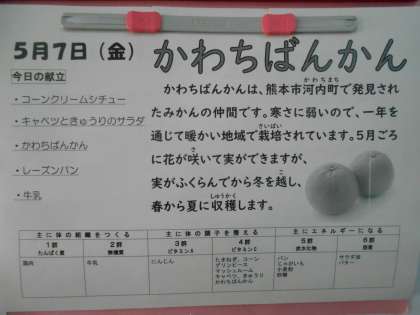 5月7日（金）
かわちばんかん
今日の献立
・コーンクリームシチュー
・キャベツときゅうりのサラダ
・かわちばんかん
・レーズンパン
・牛乳
かわちばんかんは、熊本市河内町で発見され
たみかんの仲間です。寒さに弱いので、一年を
通じて暖かい地域で栽培されています。5月ごろ
に花が咲いて実ができますが、
実がふくらんでから冬を越し、
春から夏に収穫します。
主に体の組織をつくる 主に体の調子を整える 主にエネルギーになる
1群 2群 3群 4群 5群 6群
たんぱく質 無機質 ビタミンA ビタミンC 炭水化物 脂質
鶏肉 牛乳 にんじん たまねぎ、コーン パン サラダ油
グリンピース じゃがいも バター
マッシュルーム 小麦粉
キャベツ、きゅうり 砂糖
かわちばんかん